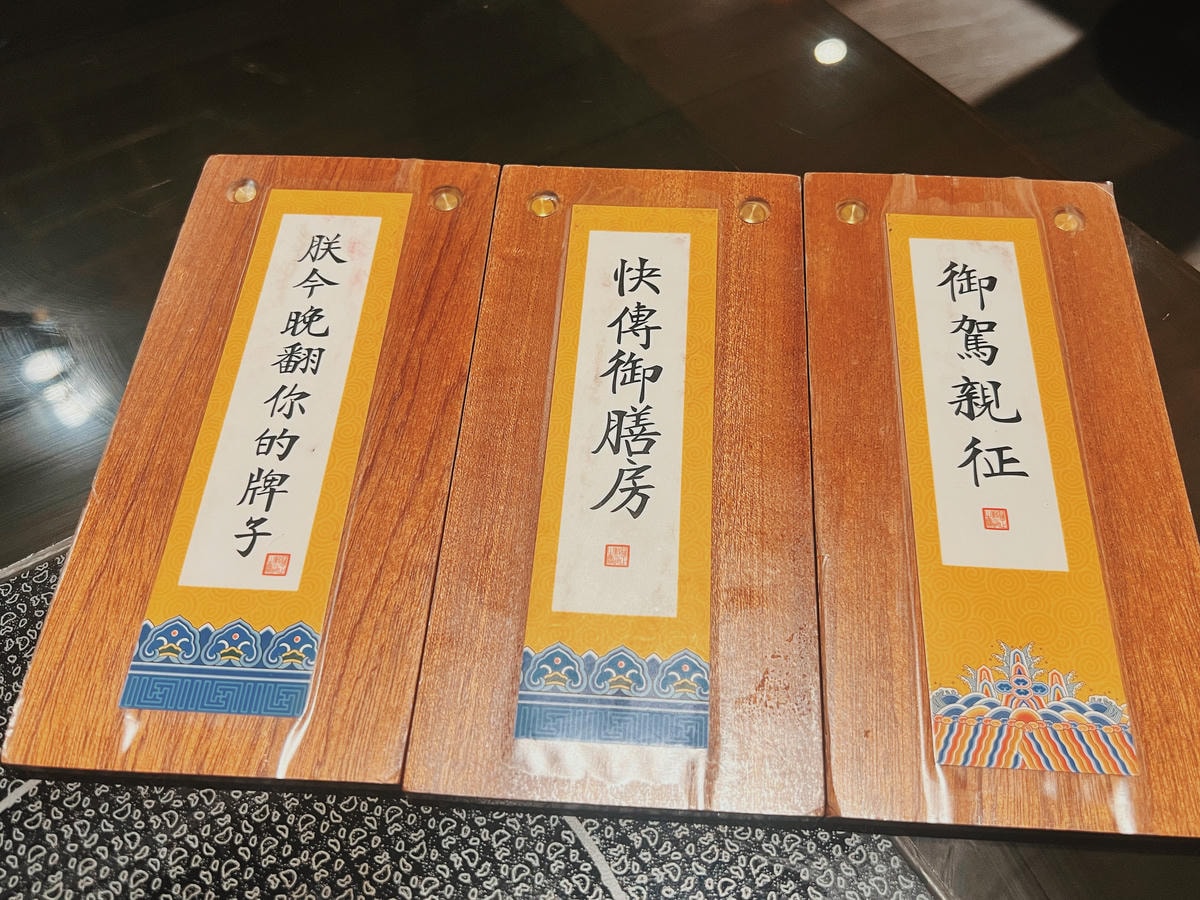 朕今晚翻你的牌子
快傳御膳房
御駕親征